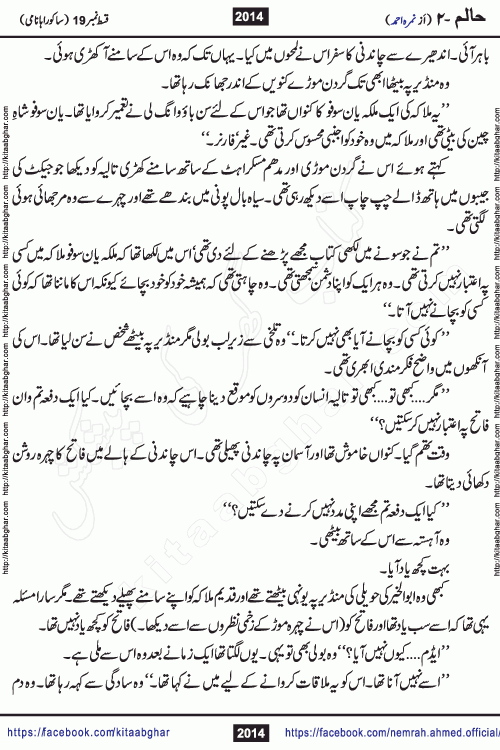 حالم -۲ (از نمرہ احمد) 2014 قسط نمبر 19 (ساکورا ہانامی)
باہر آئی۔ اندھیرے سے چاندنی کا سفر اس نے لمحوں میں کیا۔ یہاں تک کہ وہ اس کے سامنے آ کھڑی ہوئی۔
وہ منڈیر پہ بیٹھا ابھی تک گردن موڑے کنویں کے اندر جھانک رہا تھا۔
’’یہ ملاکہ کی ایک ملکہ یان سوفو کا کنواں تھا جو اس کے لئے سن باؤ وانگ لی نے تعمیر کروایا تھا۔ یان سوفو شاہِ
چین کی بیٹی تھی اور ملاکہ میں وہ خود کو اجنبی محسوس کرتی تھی۔ غیر‘ فارنر۔‘‘
کہتے ہوئے اس نے گردن موڑی اور مدھم مسکراہٹ کے ساتھ سامنے کھڑی تالیہ کو دیکھا جو جیکٹ کی
جیبوں میں ہاتھ ڈالے چپ چاپ اسے دیکھ رہی تھی۔ سیاہ بال پونی میں بندھے تھے اور چہرے سے وہ مرجھائی ہوئی
لگتی تھی۔
’’تم نے جو سونے میں لکھی کتاب مجھے پڑھنے کے لئے دی تھی‘ اس میں لکھا تھا کہ ملکہ یان سوفو ملاکہ میں کسی
پہ اعتبار نہیں کرتی تھی۔ وہ ہر ایک کو اپنا دشمن سمجھتی تھی۔ وہ چاہتی تھی کہ ہمیشہ خود کو خود بچائے کیونکہ اس کا ماننا تھا کہ کوئی
کسی کو بچانے نہیں آتا۔‘‘
’’کوئی کسی کو بچانے آیا بھی نہیں کرتا۔‘‘ وہ تلخی سے زیرلب بولی مگر منڈیر پہ بیٹھے شخص نے سن لیا تھا۔ اس کی
آنکھوں میں واضح فکرمندی ابھری تھی۔
’’مگر....کبھی تو....کبھی تو تالیہ انسان کو دوسروں کو موقع دینا چاہیے کہ وہ اسے بچائیں۔ کیا ایک دفعہ تم وان
فاتح پہ اعتبار نہیں کر سکتیں؟‘‘
وقت تھم گیا۔ کنواں خاموش تھا اور آسمان پہ چاندنی پھیلی تھی۔ اس چاندنی کے ہالے میں فاتح کا چہرہ روشن
دکھائی دیتا تھا۔
’’کیا ایک دفعہ تم مجھے اپنی مدد نہیں کرنے دے سکتیں؟‘‘
وہ آہستہ سے اس کے ساتھ بیٹھی۔
بہت کچھ یاد آیا۔
کبھی وہ ابوالخیر کی حویلی کی منڈیر پہ یونہی بیٹھتے تھے اور قدیم ملاکہ کو اپنے سامنے پھیلے دیکھتے تھے۔ مگر سارا مسئلہ
یہی تھا کہ اسے سب یاد تھا اور فاتح کو (اس نے چہرہ موڑ کے زخمی نظروں سے اسے دیکھا۔) فاتح کو کچھ یاد نہیں تھا۔
’’ایڈم....کیوں نہیں آیا؟‘‘ وہ بولی بھی تو یہی۔ یوں لگتا تھا ایک زمانے بعد وہ اس سے ملی ہے۔
’’اسے نہیں آنا تھا۔ اس کو یہ ملاقات کروانے کے لیے میں نے کہا تھا۔‘‘ وہ سادگی سے کہہ رہا تھا۔ وہ دم
https://facebook.com/kitaabghar 2014 https://facebook.com/nemrah.ahmed.official/
http://kitaabghar.com http://kitaabghar.com http://kitaabghar.com http://kitaabghar.com
http://kitaabghar.com http://kitaabghar.com http://kitaabghar.com http://kitaabghar.com